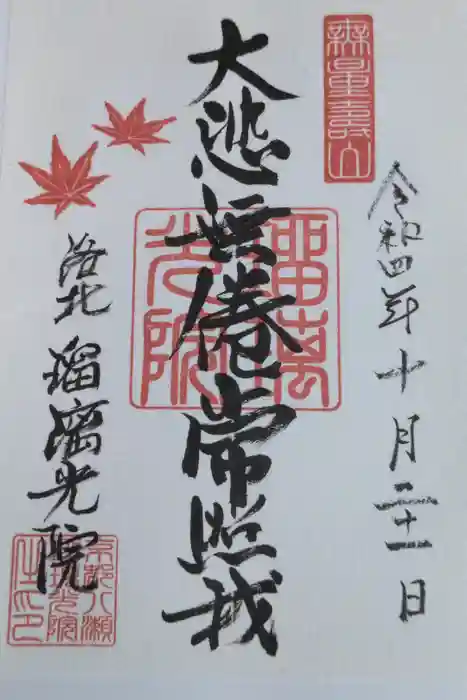 無量壽山
令和四年十月二十一日
大悲無倦常照我
瑠璃
光院
洛北 瑠璃光院
京都八瀬